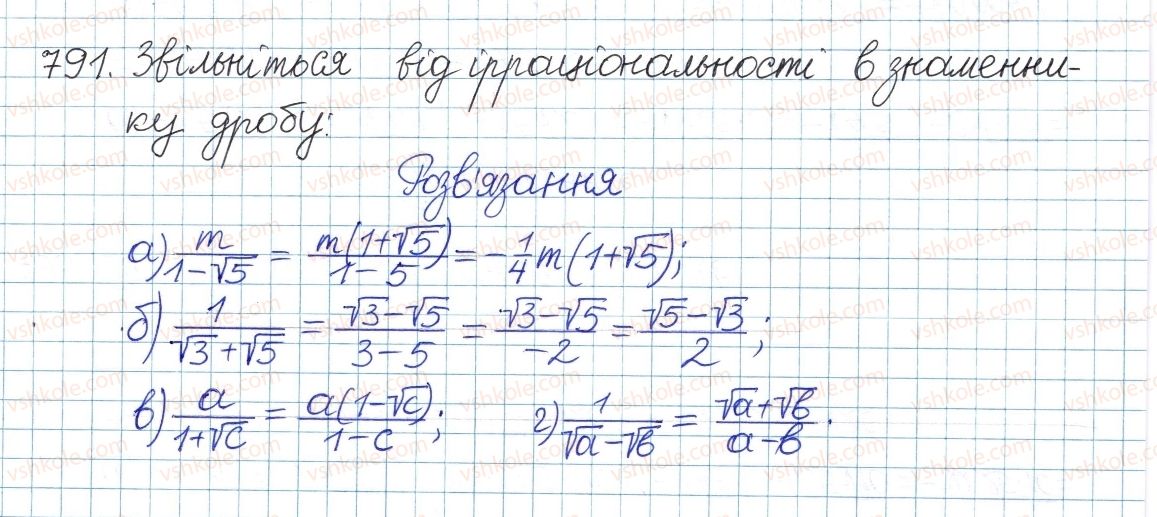 791. Звільніться від ірраціональності в знаменни-
ку дробу:
Розв'язання
а) m/(1-√5) = m(1+√5)/(1-5) = -1/4 m(1+√5);
б) 1/(√3+√5) = (√3-√5)/(3-5) = (√3-√5)/(-2) = (√5-√3)/2;
в) a/(1+√c) = a(1-√c)/(1-c); г) 1/(√a-√b) = (√a+√b)/(a-b).